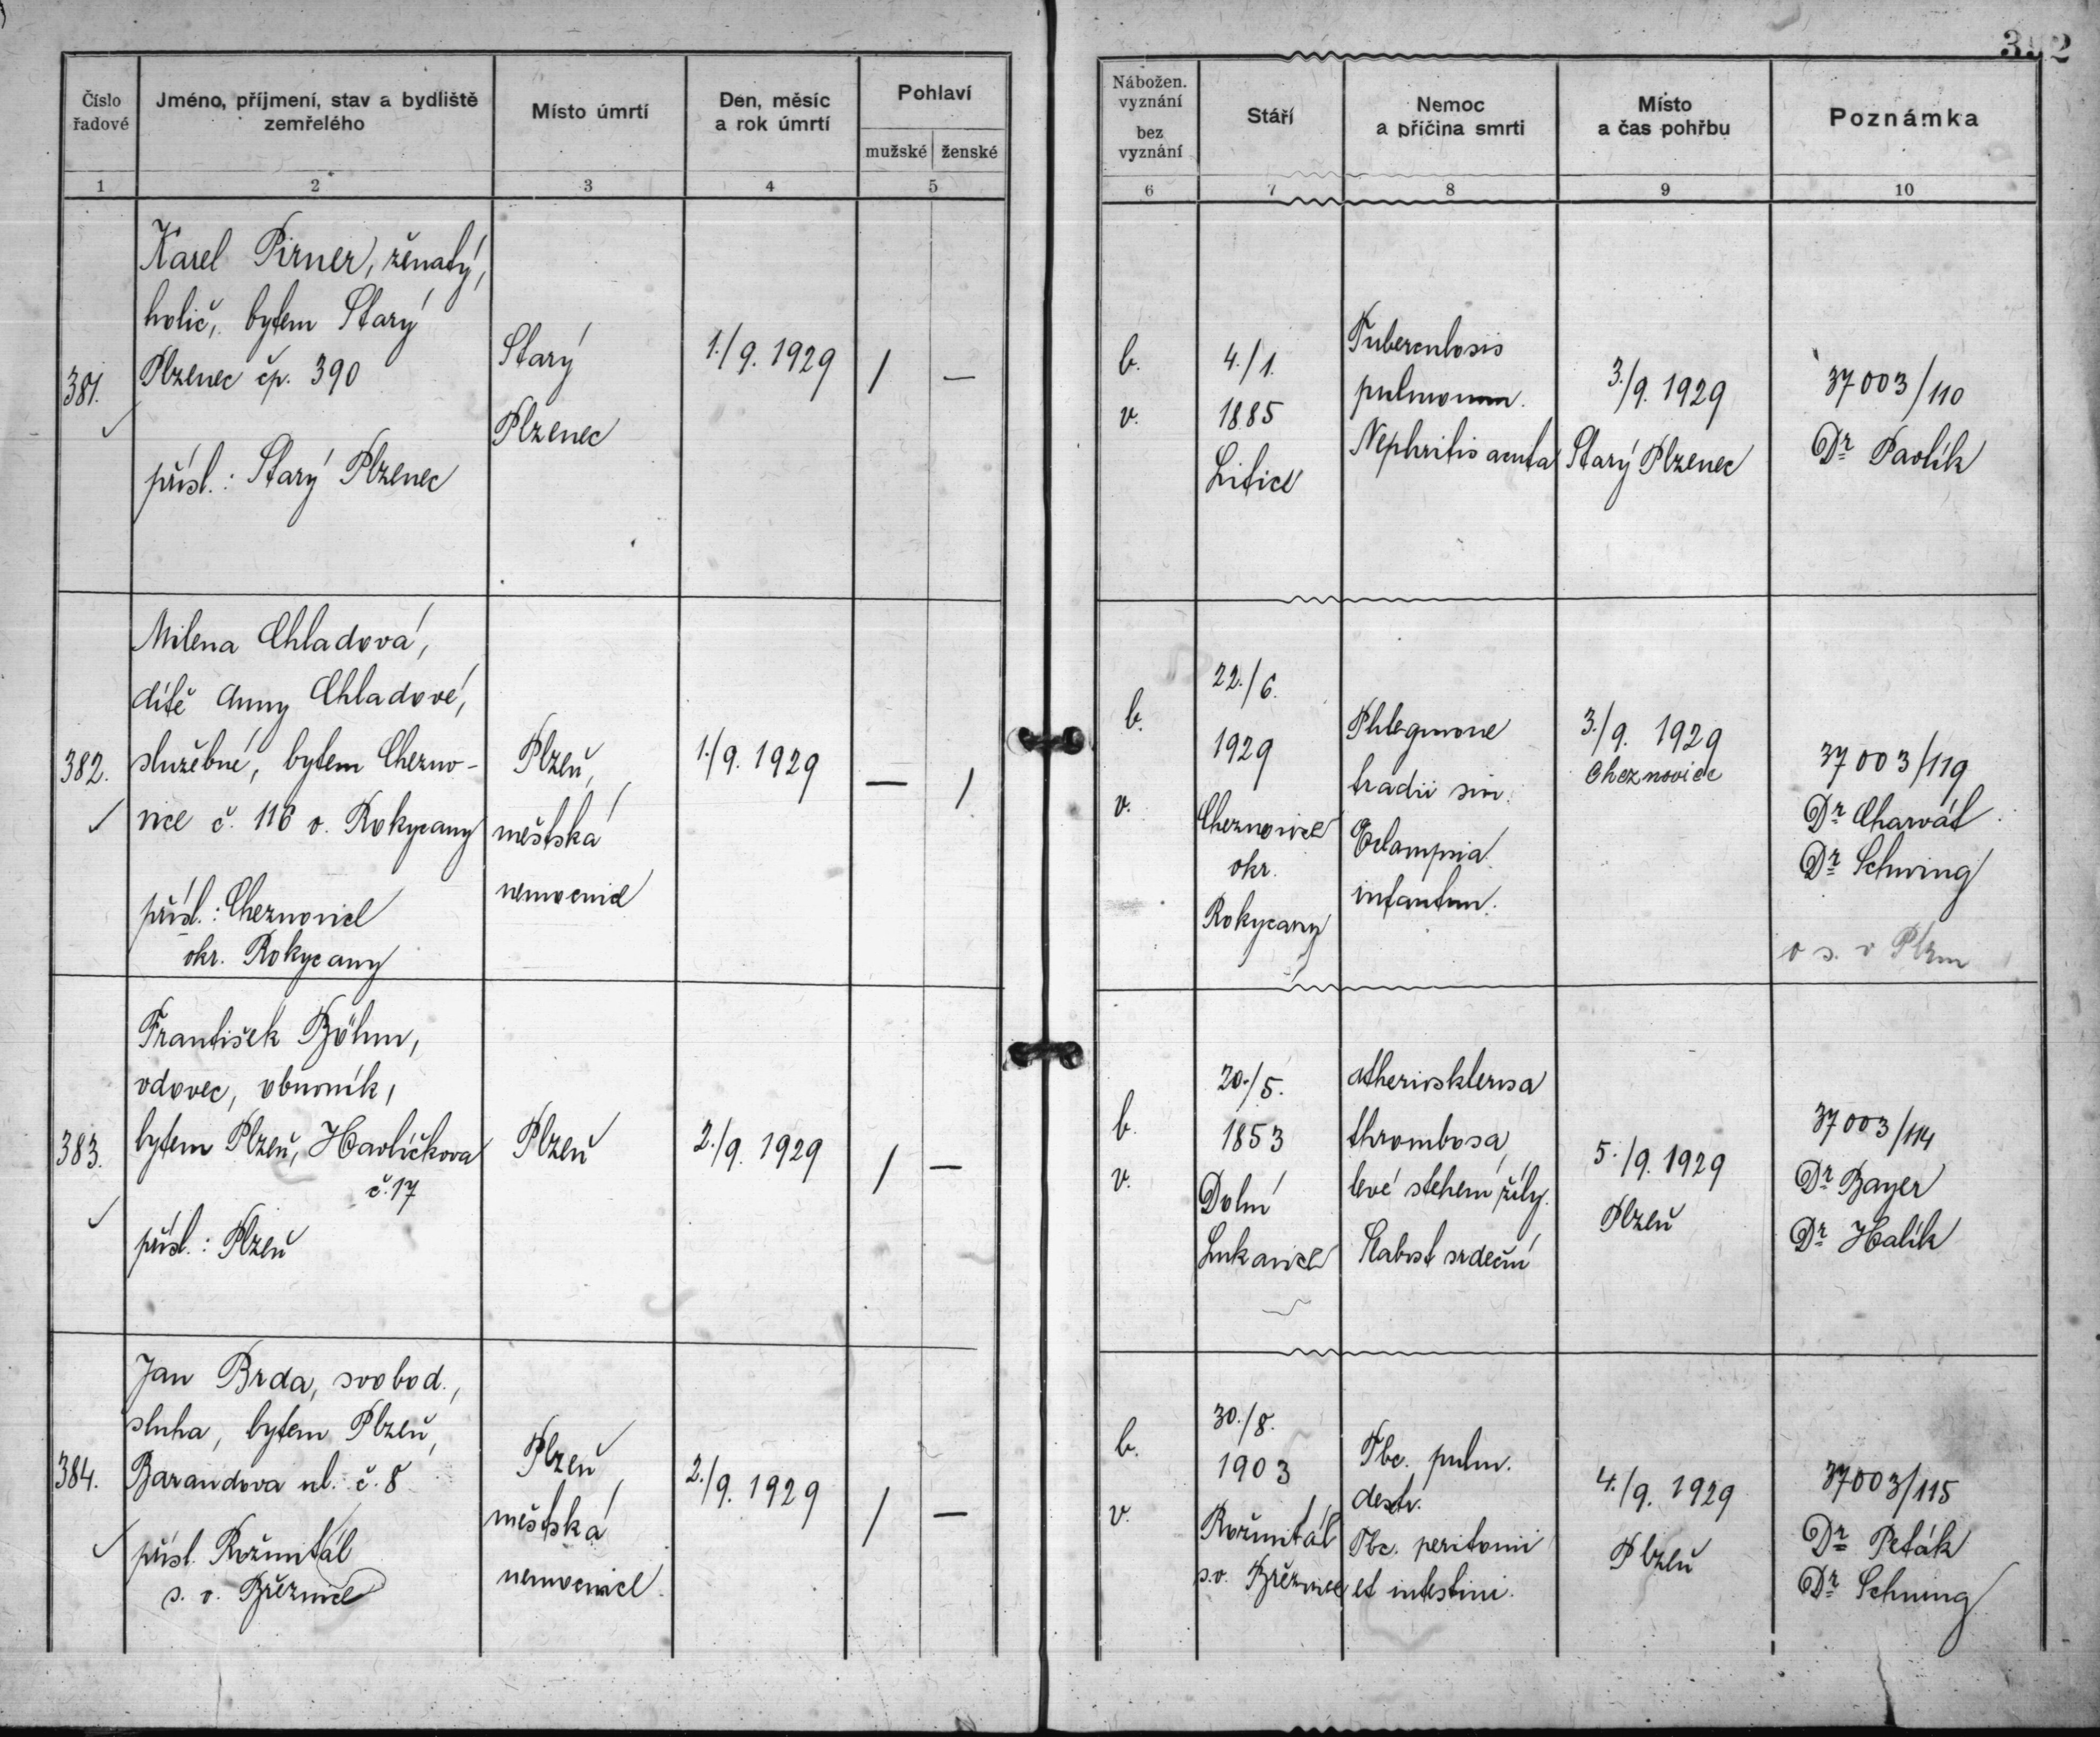 Číslo řadové
Jméno, příjmení, stav a bydliště zemřelého
Místo úmrtí
Den, měsíc a rok úmrtí
Pohlaví
mužské
ženské
Nábožen. vyznání
bez vyznání
Stáří
Nemoc a příčina smrti
Místo a čas pohřbu
Poznámka
1
2
3
4
5
6
7
8
9
10
381.
Karel Pirner, ženatý,
holič, bytem Starý
Plzenec čp. 390
přísl.: Starý Plzenec
Starý
Plzenec
1./9. 1929
/
—
b.
v.
4./1.
1885
Litice
Tuberculosis
pulmonum.
Nephritis acuta
3./9. 1929
Starý Plzenec
37003/110
Dr Pavlík
382.
Milena Chladová,
dítě Anny Chladové,
služebné, bytem Chezno-
vice č. 116 o. Rokycany
přísl.: Cheznovice
okr. Rokycany
Plzeň,
městská
nemocnice
1./9. 1929
—
/
b.
v.
22./6.
1929
Cheznovice
okr.
Rokycany
Phlegmone
sin.
Eclampsia
infantum.
3./9. 1929
Cheznovice
37003/119
Dr Charvát
Dr Schwing
o s. v Plzni
383.
František Böhm,
vdovec, obuvník,
bytem Plzeň, Havlíčkova
č. 17
přísl.: Plzeň
Plzeň
2./9. 1929
/
—
b.
v.
20./5.
1853
Dolní
Lukavice
atheriosklerosa
thrombosa
levé stehenní žíly.
Slabost srdeční
5./9. 1929
Plzeň
37003/114
Dr Bayer
Dr Halík
384.
Jan Brda, svobod.,
sluha, bytem Plzeň,
Barandova ul. č. 8
přísl. Rožmitál
s. o. Březnice
Plzeň
městská
nemocnice
2./9. 1929
/
—
b.
v.
30./8.
1903
Rožmitál
s.o. Březnice
Tbc. pulm.
destr.
Tbc. peritonii
et intestini.
4./9. 1929
Plzeň
37003/115
Dr Peták
Dr Schwing